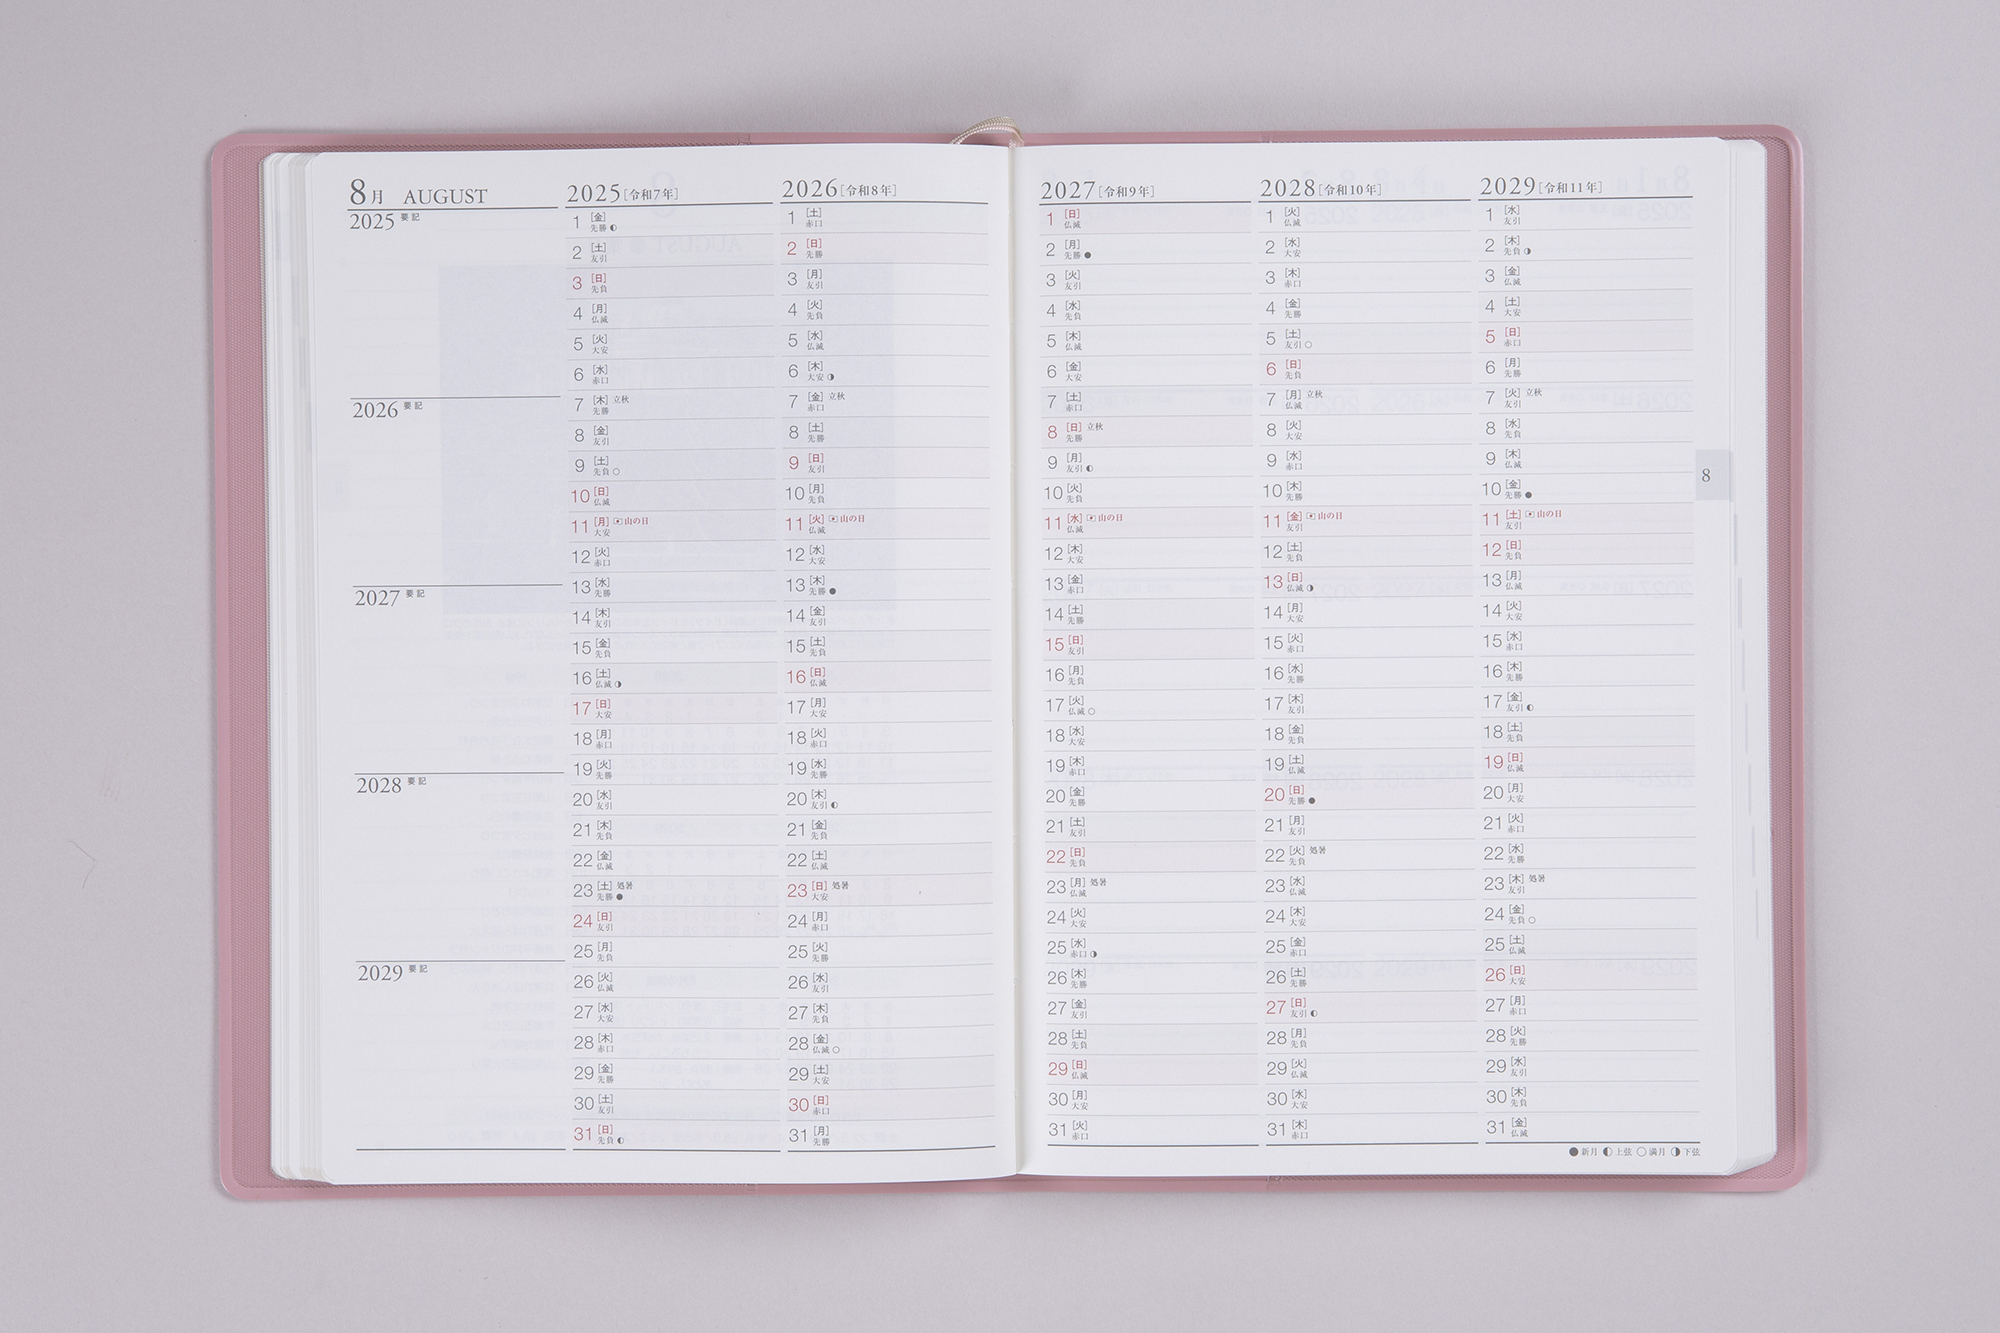 8月 AUGUST
2025 要記
2026 要記
2027 要記
2028 要記
2029 要記
2025[令和7年]
1 [金] 先勝 ◐
2 [土] 友引
3 [日] 先負
4 [月] 仏滅
5 [火] 大安
6 [水] 赤口
7 [木] 立秋 先勝
8 [金] 友引
9 [土] 先負 ○
10 [日] 仏滅
11 [月] 山の日 大安
12 [火] 赤口
13 [水] 先勝
14 [木] 友引
15 [金] 先負
16 [土] 仏滅 ◑
17 [日] 大安
18 [月] 赤口
19 [火] 先勝
20 [水] 友引
21 [木] 先負
22 [金] 仏滅
23 [土] 処暑 先勝 ●
24 [日] 友引
25 [月] 先負
26 [火] 仏滅
27 [水] 大安
28 [木] 赤口
29 [金] 先勝
30 [土] 友引
31 [日] 先負 ◐
2026[令和8年]
1 [土] 赤口
2 [日] 先勝
3 [月] 友引
4 [火] 先負
5 [水] 仏滅
6 [木] 大安 ◑
7 [金] 立秋 赤口
8 [土] 先勝
9 [日] 友引
10 [月] 先負
11 [火] 山の日 仏滅
12 [水] 大安
13 [木] 先勝 ●
14 [金] 友引
15 [土] 先負
16 [日] 仏滅
17 [月] 大安
18 [火] 赤口
19 [水] 先勝
20 [木] 友引 ◐
21 [金] 先負
22 [土] 仏滅
23 [日] 処暑 大安
24 [月] 赤口
25 [火] 先勝
26 [水] 友引
27 [木] 先負
28 [金] 仏滅 ○
29 [土] 大安
30 [日] 赤口
31 [月] 先勝
2027[令和9年]
1 [日] 仏滅
2 [月] 先勝 ●
3 [火] 友引
4 [水] 先負
5 [木] 仏滅
6 [金] 大安
7 [土] 赤口
8 [日] 立秋 先勝
9 [月] 友引 ◐
10 [火] 先負
11 [水] 山の日 仏滅
12 [木] 大安
13 [金] 赤口
14 [土] 先勝
15 [日] 友引
16 [月] 先負
17 [火] 仏滅 ○
18 [水] 大安
19 [木] 赤口
20 [金] 先勝
21 [土] 友引
22 [日] 先負
23 [月] 処暑 仏滅
24 [火] 大安
25 [水] 赤口 ◑
26 [木] 先勝
27 [金] 友引
28 [土] 先負
29 [日] 仏滅
30 [月] 大安
31 [火] 赤口
2028[令和10年]
1 [火] 仏滅
2 [水] 大安
3 [木] 赤口
4 [金] 先勝
5 [土] 友引 ○
6 [日] 先負
7 [月] 立秋 仏滅
8 [火] 大安
9 [水] 赤口
10 [木] 先勝
11 [金] 山の日 友引
12 [土] 先負
13 [日] 仏滅 ◑
14 [月] 大安
15 [火] 赤口
16 [水] 先勝
17 [木] 友引
18 [金] 先負
19 [土] 仏滅
20 [日] 先勝 ●
21 [月] 友引
22 [火] 処暑 先負
23 [水] 仏滅
24 [木] 大安
25 [金] 赤口
26 [土] 先勝
27 [日] 友引 ◐
28 [月] 先負
29 [火] 仏滅
30 [水] 大安
31 [木] 赤口
2029[令和11年]
1 [水] 友引
2 [木] 先負 ◑
3 [金] 仏滅
4 [土] 大安
5 [日] 赤口
6 [月] 先勝
7 [火] 立秋 友引
8 [水] 先負
9 [木] 仏滅
10 [金] 先勝 ●
11 [土] 山の日 友引
12 [日] 先負
13 [月] 仏滅
14 [火] 大安
15 [水] 赤口
16 [木] 先勝
17 [金] 友引 ◐
18 [土] 先負
19 [日] 仏滅
20 [月] 大安
21 [火] 赤口
22 [水] 先勝
23 [木] 処暑 友引
24 [金] 先負 ○
25 [土] 仏滅
26 [日] 大安
27 [月] 赤口
28 [火] 先勝
29 [水] 友引
30 [木] 先負
31 [金] 仏滅
8
●新月 ◐上弦 ○満月 ◑下弦